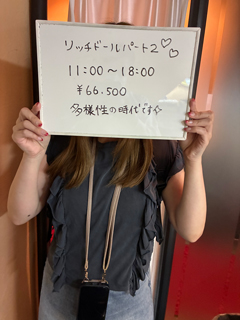 リッチドールパート2♡♡
11:00〜18:00
¥66.500
多様性の時代です☆